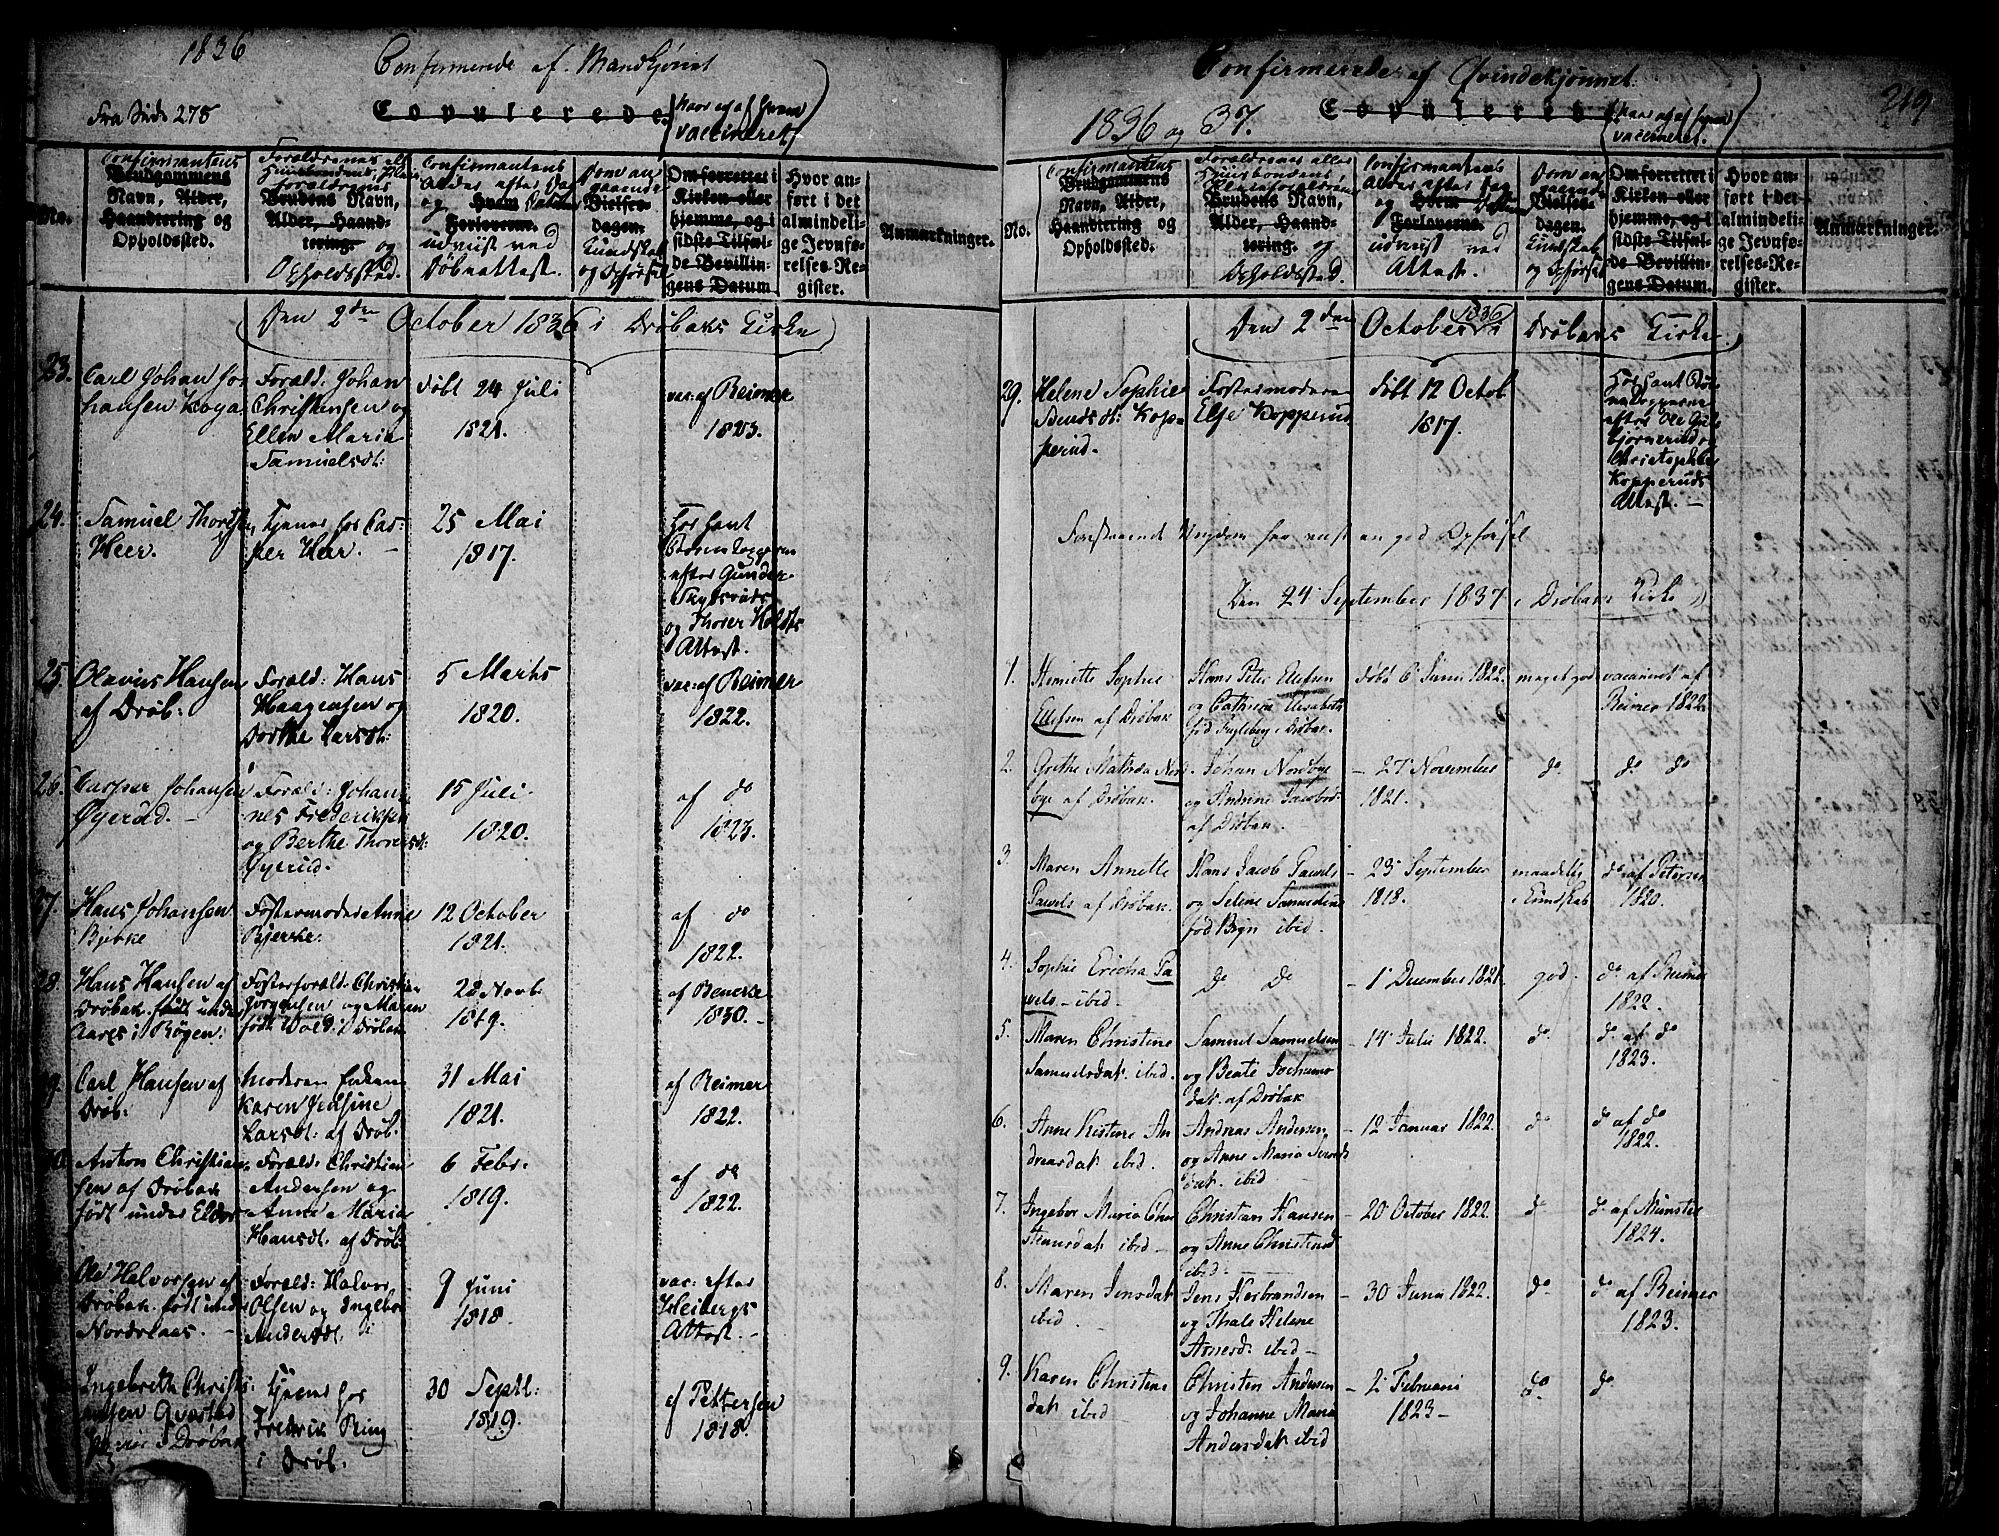 1836
Confirmerede af Mandkjønnet
Fra Side 275
Copulerede.
naar og af hvem
vaccineret
No.
Confirmantens
Brudgommens
Navn, Alder,
Haandtering og
Opholdssted.
Forældrenes
Brudens Navn,
Alder, Haand-
tering. og
Opholdssted.
Confirmantens
Alder efter Dag
og Hvem Datum
Forloverne.
udviist ved
Døbeattest.
Dom an-
gaaende
Vielses-
Dagen.
Kundskab
og Opførsel
Om forrettet i
Kirken eller
hjemme, og i
sidste Tilfæl-
de Bevillin-
gens Datum
Hvor an-
ført i det
almindeli-
ge Jevnfø-
relses-Re-
gister.
Anmærkninger.
Den 2den October 1836 i Drøbaks Kirke
23.
Carl Johan Jo-
hansen Koya
Foræld: Johan
Christensen og
Ellen Maria
Samuelsdt:
født 24 Juli
1821.
vac: af Reimer
1823.
24.
Samuel Thorsen
Heer.
tjener hos Cas-
per Heer. –
25 Mai
1817.
efter Gunder
og Thorer Holdts
Attest.
25.
Olavus Hansen
af Drøb:
Foræld: Hans
Haagensen og
Dorthe Larsdt:
5 Marts
1820.
vac: af Reimer
1822.
26.
Casper Johansen
Øyerud. –
Foræld: Johan-
nes Frederiksen
og Berthe Thoresdt:
Øyerud.
15 Juli
1820.
af do
1823.
27.
Hans Johansen
Bjerke
Fostermoder Anne
Bjerke.
12 October
1821.
af do
1822.
28.
Hans Hansen af
Drøbak født under
Aares i Røgen:
Fosterforæld: Christian
Jørgensen og Maren
født Wold i Drøbak
28 Novb.
1819.
af Bencke
1830. –
29.
Carl Hansen af
Drøb:
Moderen Enken
Karen Jensine
Larsdt: af Drøb.
31 Mai
1821.
af Reimer
1822.
30.
Anton Christian-
sen af Drøbak
født under Elder
Foræld: Christian
Andersen og
Anne Maria
Hansdt. af Drøb:
6 Febr.
1819.
af do
1822.
Ole Halvorsen af
Drøbak født under
Nordraas. –
Foræld: Halvor
Olsen og Ingebor
Andersdt.
9 Juni
1818.
vac: efter
Heibergs
Attest. –
Ingebreth Christi-
ansen Qvæstad
i Drøbak
tjener hos
Fredrik Ring
i Drøb.
30 Septb:
1819.
af Pettersen
1818.
Confirmerede af Qvindekjønnet.
219
1836 og 37.
Copulerede
naar og af hvem
vaccineret.
No.
Confirmantens
Brudgommens
Navn, Alder,
Haandtering og
Opholdssted.
Forældrenes eller
Huusbondens,
Pleieforældrenes
Brudens Navn,
Alder, Haand-
tering. og
Opholdssted
Confirmantens
Alder efter Dag
og Hvem Datum
Forloverne.
udviist ved
Attest.
Dom an-
gaaende
Vielses-
Dagen.
Kundskab
og Opførsel
Om forrettet i
Kirken eller
hjemme, og i
sidste Tilfæl-
de Bevillin-
gens Datum.
Hvor an-
ført i det
almindeli-
ge Jevnfø-
relses-Re-
gister.
Anmærkninger.
Den 2den October 1836 i Drøbaks Kirke.
29.
Helene Sophie
Svends dt: Kop-
perud.
Fostermoderen
Else Kopperud
født 12 Octob
1817.
efter Ole Gul-
bjørnerud og
Christopher
Kopperuds
Attest. –
Forestaaende Ungdom har viist en god Opførsel
Den 24 September 1837 i Drøbaks Kirke
1.
Henriette Sophie
Ellefsen af Drøbak
Hans Peter Ellefsen
og Cathrine Elisabeth
fød Fugleberg i Drøbak.
født 6 Juni 1822.
meget god
vaccineret af
Reimer 1822.
2.
Grethe Mathea Nord-
bye af Drøbak.
Johan Nordbye
og Andrine Jacobsd:
af Drøbak.
– 27 November
1821.
do
do do
3.
Maren Annette
Pavels af Drøbak.
Hans Jacob Pavels
og Seline Samueline
fød Bryn ibid.
– 23 September
1818.
maadelig
i Kundskab
do af Petersen
1820.
4.
Sophie Ericha Pa-
vels – ibid –
Do Do
– 1 December 1821.
god.
do af Reimer
1822.
5.
Maren Christine
Samuelsdat. ibid.
Samuel Samuelsen
og Beate Jochums
dat. af Drøbak
– 14 Julii 1822.
do.
do af do
1823.
6.
Anne Kistine An-
dreasdat. ibid.
Andreas Andersen
og Anne Maria
dat. ibid –
– 12 Januar 1822.
do
do af do
1822.
7.
Ingebor Maria Chri-
stensdat. ibid –
Christian Hansen
og Anne Christensd
ibid –
– 20 October 1822.
do
do af Münster
1824.
8.
Maren Jensdat.
ibid. –
Jens Herbrandsen
og Thale Helene
Arnesd. ibid –
– 30 Juni 1822.
do
do af Reimer
1823. –
9.
Karen Christens
dat. ibid –
Christen Andersen
og Johanne Maria
Andersdat. ibid
– 2 Februari
1823 –
do
do